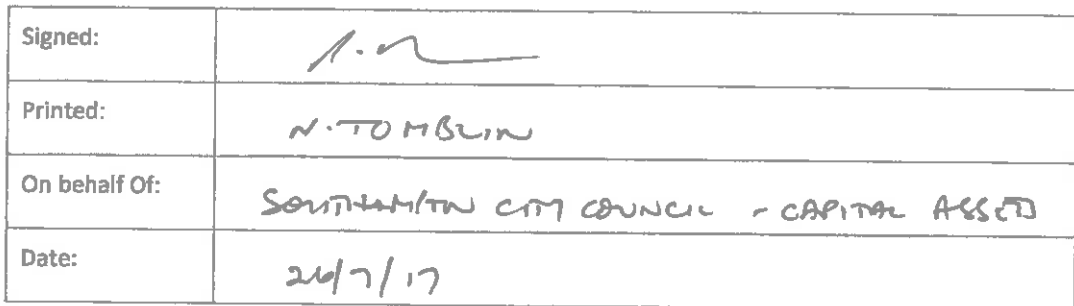 Signed:
Printed: N. TOMBLIN
On behalf Of: SOUTHAMPTON CITY COUNCIL - CAPITAL ASSETS
Date: 26/7/17